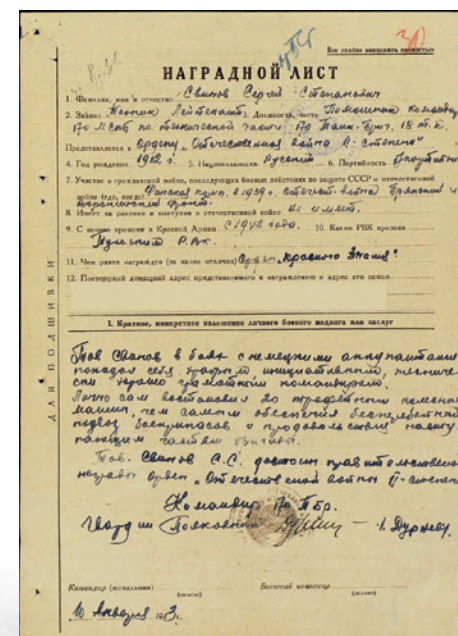 30
Все графы заполнять полностью
НАГРАДНОЙ ЛИСТ
1. Фамилия, имя и отчество Свинов Сергей Степанович
2. Звание Техник Лейтенант 3. Должность, часть Помощник командира
170 МСпб по технической части 170 Танк. Бриг. 18 т.к.
Представляется к Ордену „Отечественная война II-степени"
4. Год рождения 1912 г. 5. Национальность Русский 6. Партийность
7. Участие в гражданской войне, последующих боевых действиях по защите СССР и отечественной
войне (где, когда) Финская камп. в 1939 г. отечест. война Брянский и
Воронежский фронт.
8. Имеет ли ранения и контузии в отечественной войне Не имеет.
9. С какого времени в Красной Армии С 1942 года. 10. Каким РВК призван
Тульский РВК.
11. Чем ранее награжден (за какие отличия) Орден „Красного Знамя".
12. Постоянный домашний адрес представляемого к награждению и адрес его семьи
ДЛЯ ПОДШИВКИ
I. Краткое, конкретное изложение личного боевого подвига или заслуг
Тов Свинов в боях с немецкими аккупантами
показал себя храбрым, инициативным, техниче
ски хорошо грамотным командиром.
Лично сам востановил 20 трофейных
машин, чем самым обеспечил бесперебойный
подвоз боеприпасов и продовольствия насту
пающим частям бригады.
Тов. Свинов С.С. достоин правительственной
награды орден „Отечественной войны II-степени
Командир 170 ТБр.
Гвардии Полковник - /. Дурнев/.
Командир (начальник) Военный комиссар
10 Января 1943г.